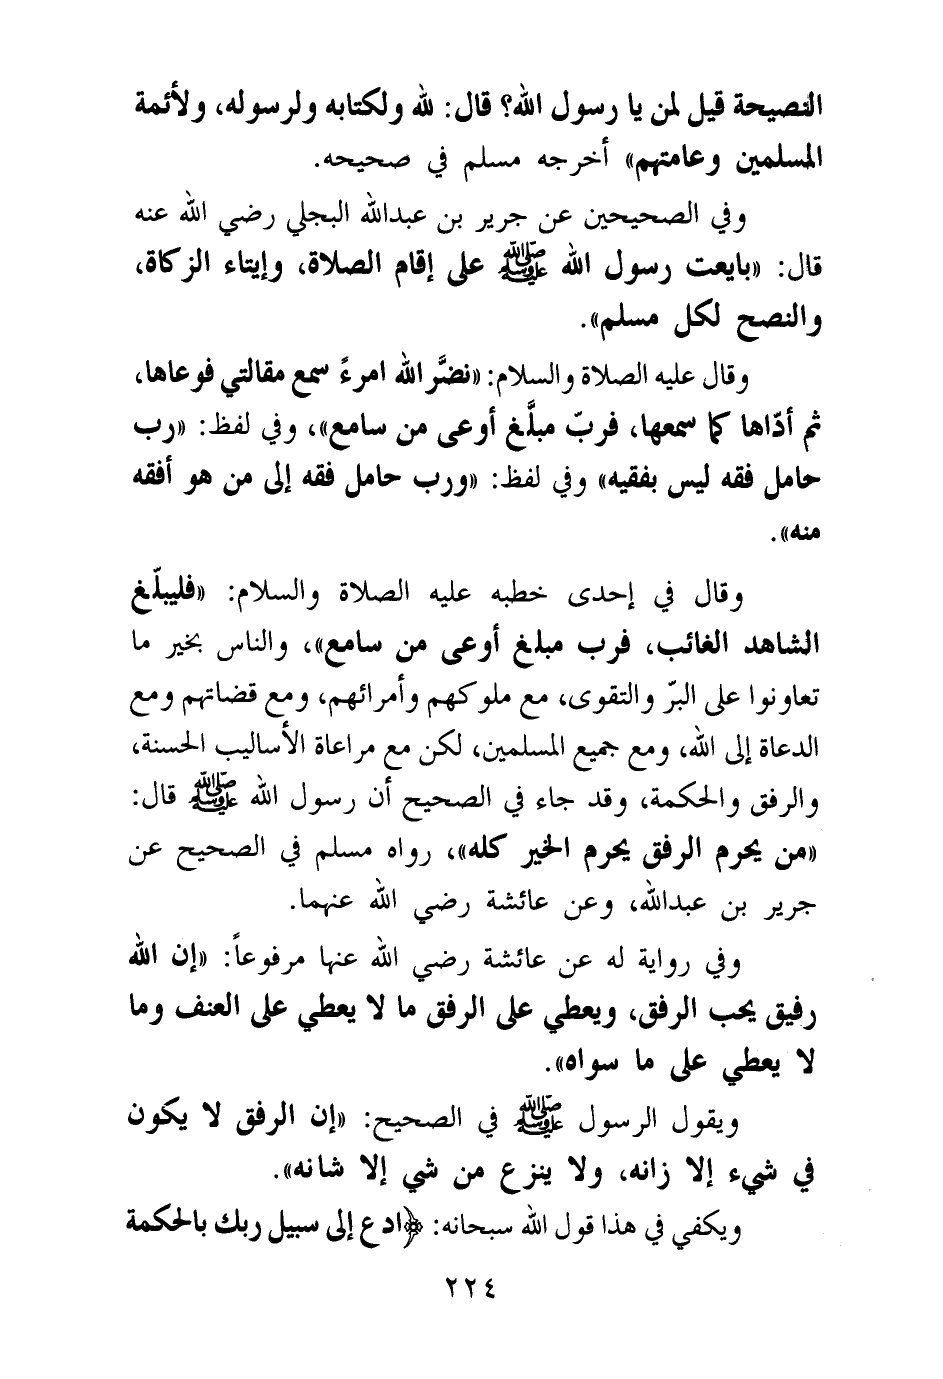 النصيحة قيل لمن يا رسول الله؟ قال: لله ولكتابه ولرسوله، ولأئمة
المسلمين وعامتهم» أخرجه مسلم في صحيحه.
وفي الصحيحين عن جرير بن عبدالله البجلي رضي الله عنه
قال: «بايعت رسول الله ﷺ على إقام الصلاة، وإيتاء الزكاة،
والنصح لكل مسلم».
وقال عليه الصلاة والسلام: «نضَّر الله امرءً سمع مقالتي فوعاها،
ثم أدّاها كما سمعها، فربّ مبلَّغ أوعى من سامع»، وفي لفظ: «رب
حامل فقه ليس بفقيه» وفي لفظ: «ورب حامل فقه إلى من هو أفقه
منه».
وقال في إحدى خطبه عليه الصلاة والسلام: «فليبلّغ
الشاهد الغائب، فرب مبلغ أوعى من سامع»، والناس بخير ما
تعاونوا على البرّ والتقوى، مع ملوكهم وأمرائهم، ومع قضاتهم ومع
الدعاة إلى الله، ومع جميع المسلمين، لكن مع مراعاة الأساليب الحسنة،
والرفق والحكمة، وقد جاء في الصحيح أن رسول الله ﷺ قال:
«من يحرم الرفق يحرم الخير كله»، رواه مسلم في الصحيح عن
جرير بن عبدالله، وعن عائشة رضي الله عنهما.
وفي رواية له عن عائشة رضي الله عنها مرفوعاً: «إن الله
رفيق يحب الرفق، ويعطي على الرفق ما لا يعطي على العنف وما
لا يعطي على ما سواه».
ويقول الرسول ﷺ في الصحيح: «إن الرفق لا يكون
في شيء إلا زانه، ولا ينزع من شي إلا شانه».
ويكفي في هذا قول الله سبحانه: ﴿ادع إلى سبيل ربك بالحكمة
٢٢٤